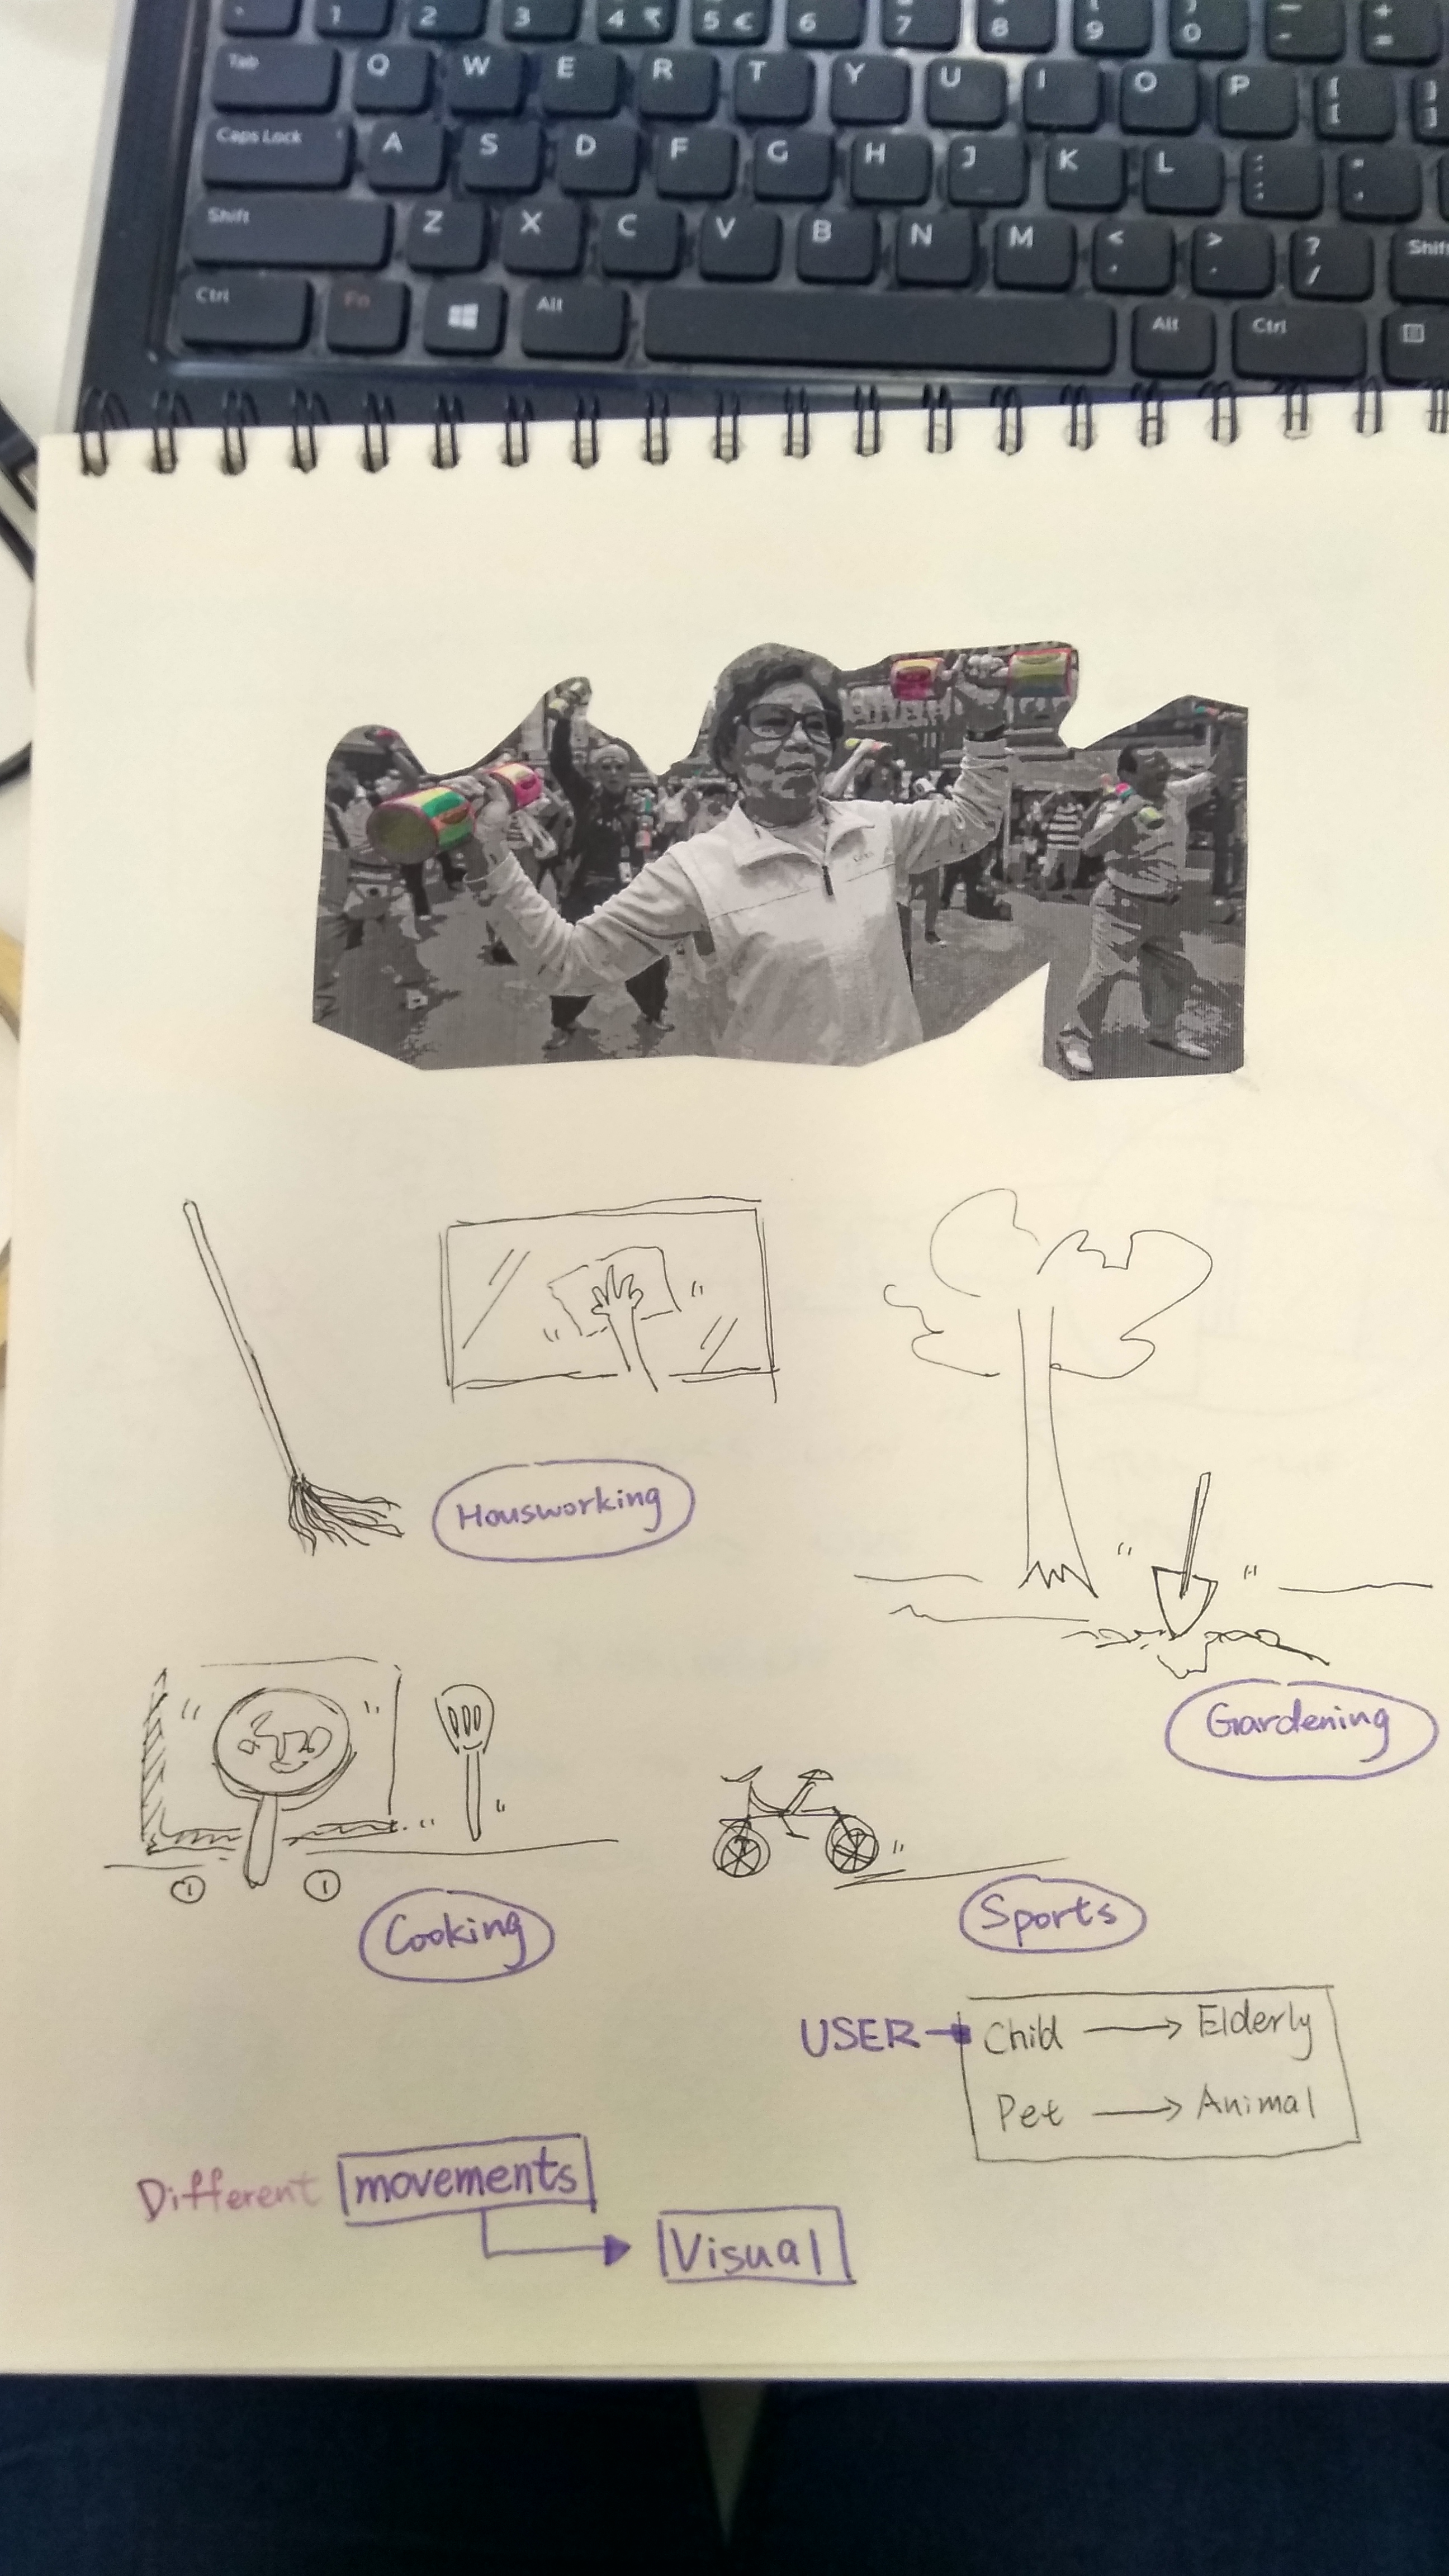 1 2 3 4 ₹ 5 € 6 7 8 9 0 - + =
Tab Q W E R T Y U I O P [ ]
Caps Lock A S D F G H J K L : ;
Shift Z X C V B N M < , > . ? / Shift
Ctrl Fn Alt Alt Ctrl
Housworking
Gardening
Cooking
Sports
USER → Child → Elderly
Pet → Animal
Different movements
Visual